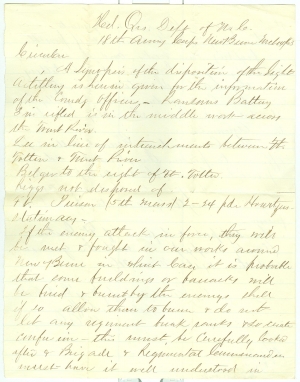 Hd. Qrs. Defs of N.C.
18th Army Corps New Berne
Circular
A Synopsis of the disposition of the light
Artillery is herein given for the information
of the Comdg Officers — Ransoms Battery
6 in rifled is in the middle work across
the Trent River.
Lee in line of intrenchments between Ft
Totten & Trent River
Belgers to the right of Ft. Totten
Riggs not disposed of.
5th Mass 2-24 pd. Howitzers
If the enemy attack in force, they will
be met & fought in our works around
New Berne in which case it is probable
that some buildings or barracks will
be fired & burned by the enemys shell
if so allow them to burn & do not
let any regiment break ranks &
confusion — this must be carefully looked
after & Brigade & Regimental Commanders
must have it well understood in